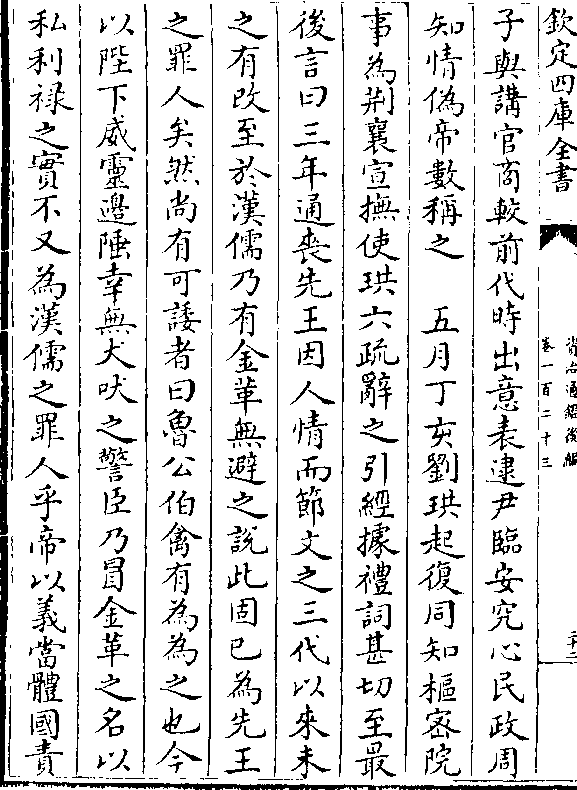 欽定四庫全書
資治通鑑後編
卷一百二十三
子與講官商較前代時出意表逮尹臨安究心民政周
知情偽帝數稱之　五月丁亥劉珙起復同知樞密院
事為荆襄宣撫使珙六疏辭之引經據禮詞甚切至最
後言曰三年通喪先王因人情而節文之三代以來未
之有改至於漢儒乃有金革無避之說此固已為先王
之罪人矣然尚有可諉者曰魯公伯禽有為為之也今
以陛下威靈邊陲幸無犬吠之警臣乃冒金革之名以
私利禄之實不又為漢儒之罪人乎帝以義當體國責